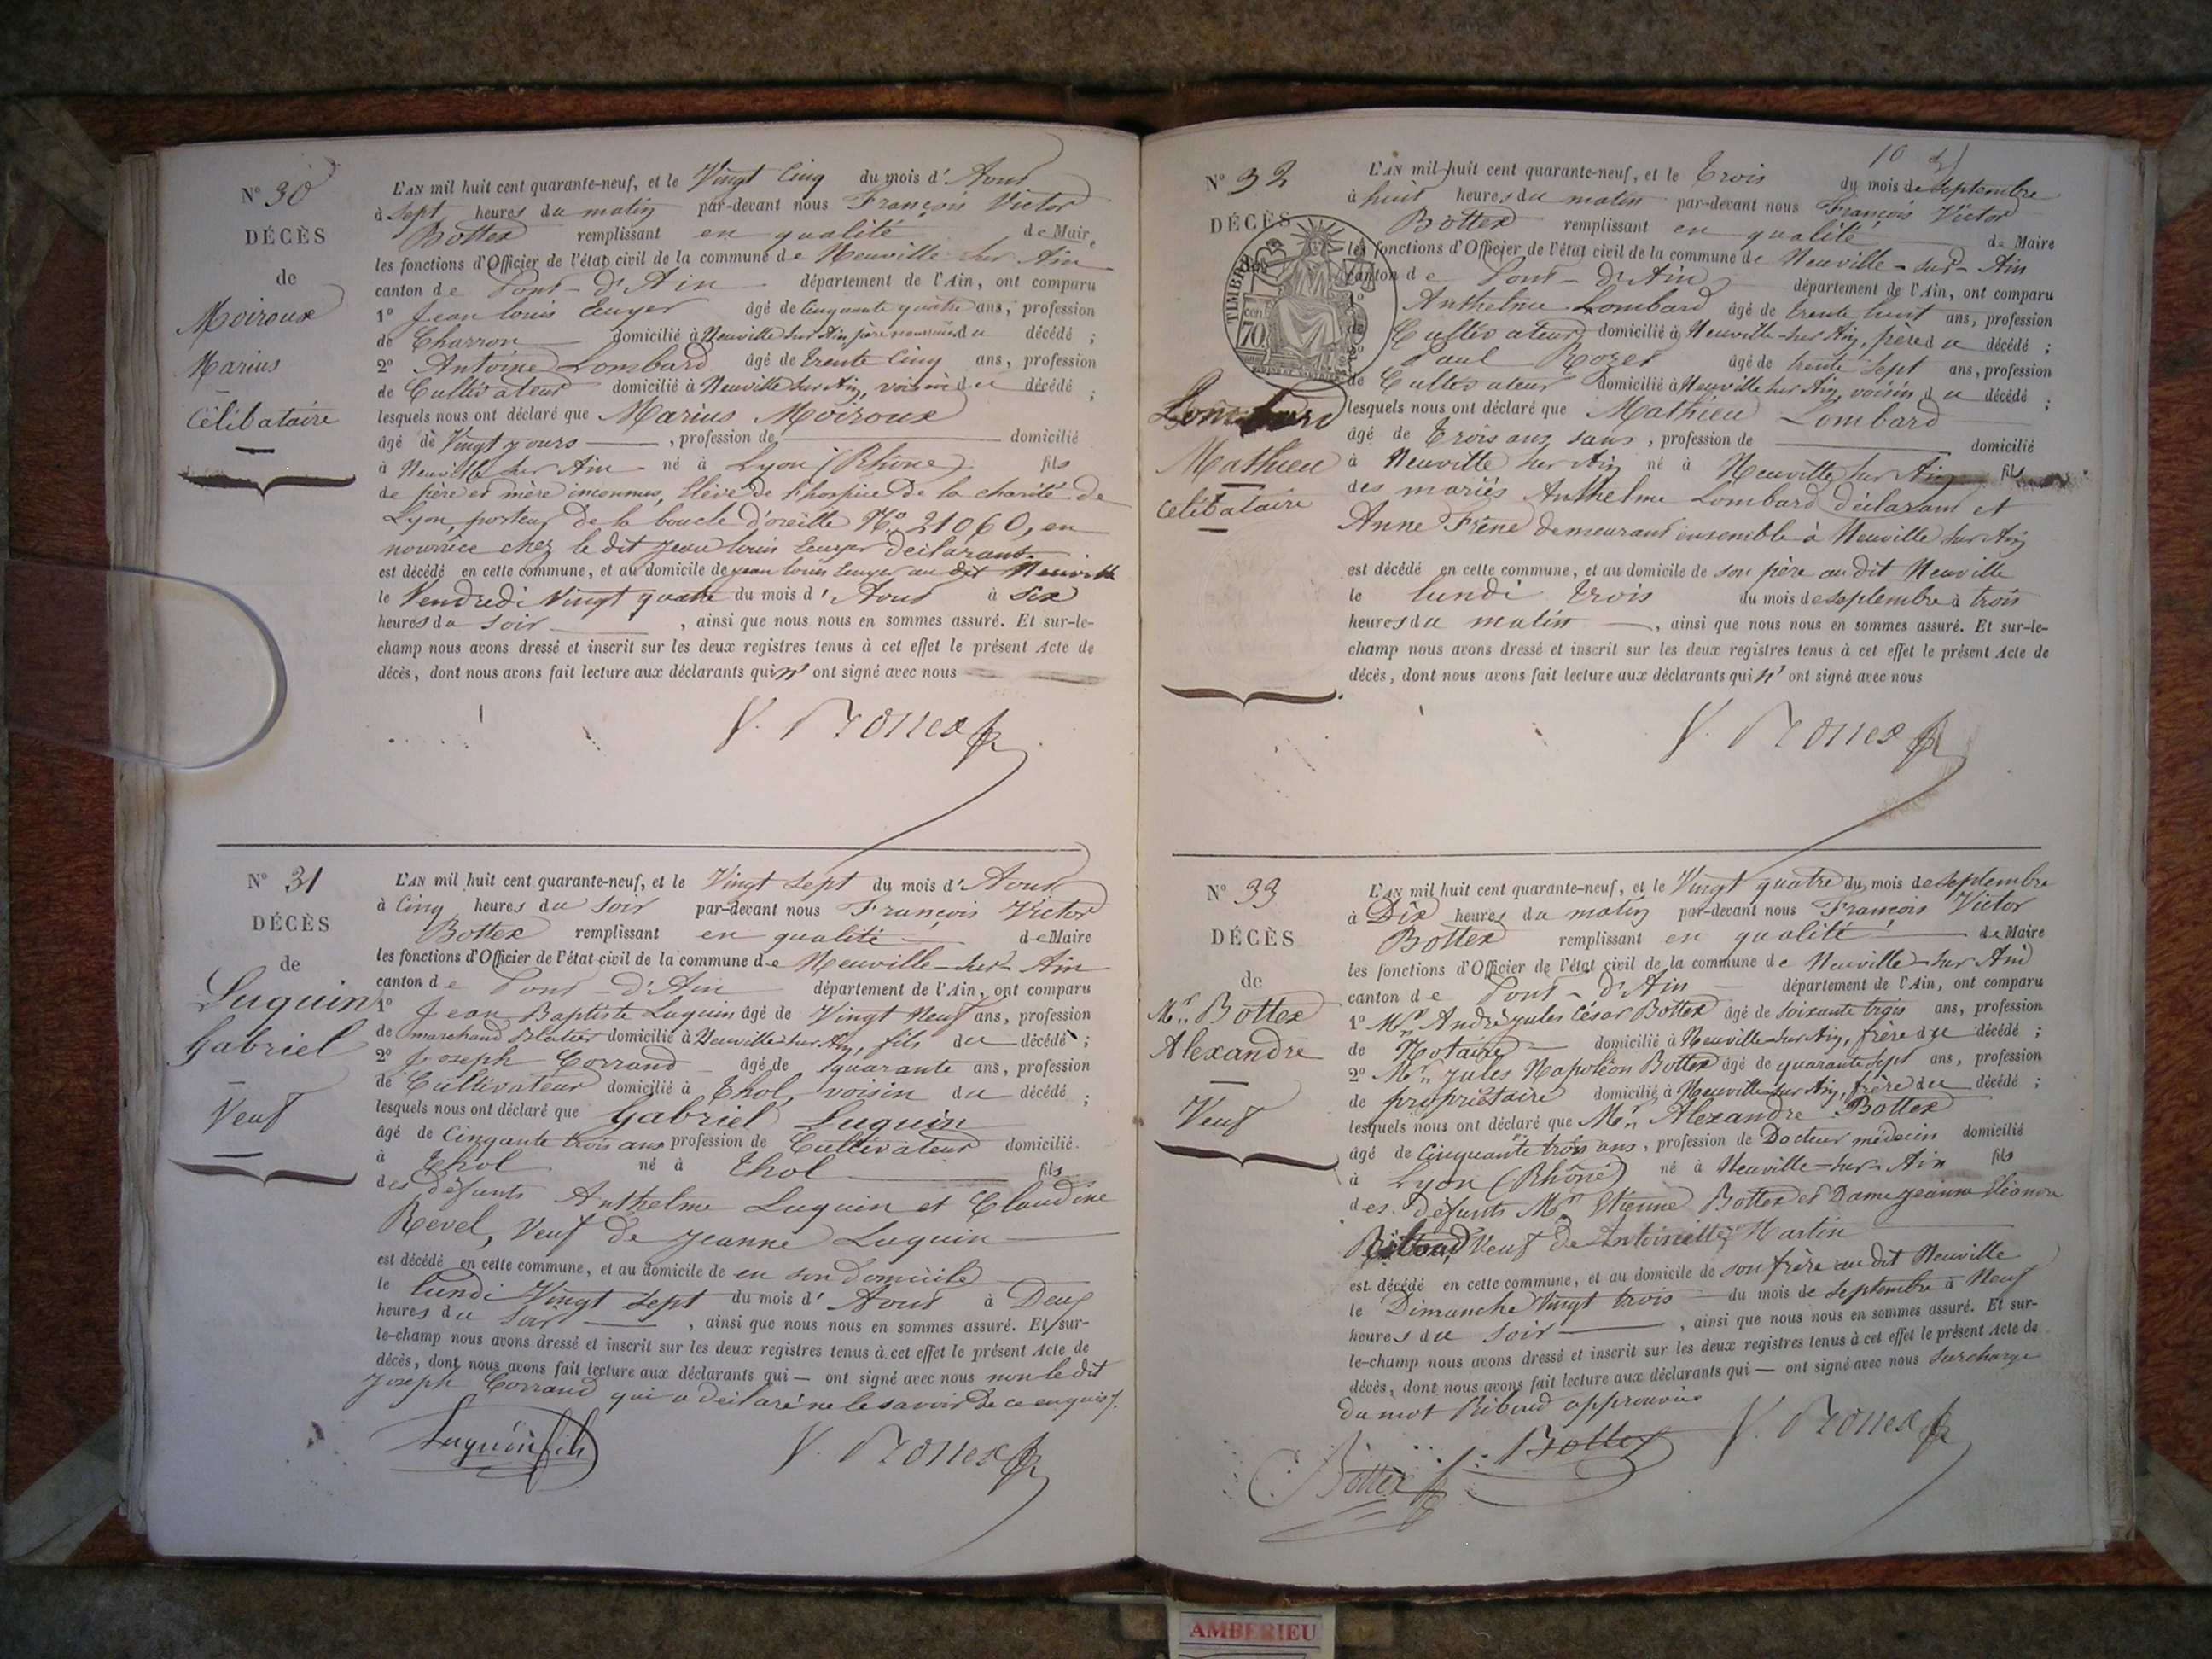 N° 30
DÉCÈS
de
Moiroux
Marius
Célibataire
L'AN mil huit cent quarante-neuf, et le Vingt Cinq du mois d'Aout
à sept heures du matin par-devant nous François Victor
Bottex remplissant en qualité de Maire
les fonctions d'Officier de l'état civil de la commune de Neuville sur Ain
canton de Pont-d'Ain département de l'Ain, ont comparu
1° Jean louis age de Cinquante quatre ans, profession
de Charron domicilié à Neuville sur Ain, père nourricier du décédé ;
2° Antoine Lombard âgé de trente Cinq ans, profession
de Cultivateur domicilié à Neuville sur Ain, voisin du décédé ;
lesquels nous ont déclaré que Marius Moiroux
âgé de Vingt jours , profession de domicilié
à Neuville sur Ain né à Lyon (Rhône) fils
de père et mère inconnus, Elève de l'hospice de la charité de
Lyon, porteur de la boucle d'oreille N° 21060, en
nourrice chez le dit Jean louis déclarant.
est décédé en cette commune, et au domicile de jean louis au dit Neuville
le Vendredi Vingt quatre du mois d'Aout à six
heures du soir , ainsi que nous nous en sommes assuré. Et sur-le-
champ nous avons dressé et inscrit sur les deux registres tenus à cet effet le présent Acte de
décès, dont nous avons fait lecture aux déclarants qui n'ont signé avec nous
V. Bottex
N° 31
DÉCÈS
de
Luquin
Gabriel
Veuf
L'AN mil huit cent quarante-neuf, et le Vingt sept du mois d'Aout
à Cinq heures du soir par-devant nous François Victor
Bottex remplissant en qualité de Maire
les fonctions d'Officier de l'état civil de la commune de Neuville-sur-Ain
canton de Pont-d'Ain département de l'Ain, ont comparu
1° Jean Baptiste Luquin âgé de Vingt Neuf ans, profession
de marchand Blatier domicilié à Neuville sur Ain, fils du décédé ;
2° Joseph Corrand âgé de quarante ans, profession
de Cultivateur domicilié à Thol, voisin du décédé ;
lesquels nous ont déclaré que Gabriel Luquin
âgé de Cinqante trois ans profession de Cultivateur domicilié
à Thol né à Thol fils
des défunts Anthelme Luquin et Claudine
Revel, Veuf de Jeanne Luquin
est décédé en cette commune, et au domicile de en son domicile
le lundi Vingt sept du mois d'Aout à Deux
heures du soir , ainsi que nous nous en sommes assuré. Et sur-
le-champ nous avons dressé et inscrit sur les deux registres tenus à cet effet le présent Acte de
décès, dont nous avons fait lecture aux déclarants qui — ont signé avec nous non le dit
Joseph Corrand qui a déclaré ne le savoir de ce enquis.
Luquin fils V. Bottex
10
N° 32
DÉCÈS
TIMBRE
cen
70
Lombard
Mathieu
Célibataire
L'AN mil huit cent quarante-neuf, et le Trois du mois de Septembre
à huit heures du matin par-devant nous François Victor
Bottex remplissant en qualité de Maire
les fonctions d'Officier de l'état civil de la commune de Neuville-sur-Ain
canton de Pont-d'Ain département de l'Ain, ont comparu
1° Anthelme Lombard âgé de trente huit ans, profession
de Cultivateur domicilié à Neuville-sur Ain, père du décédé ;
2° Paul Rozet âgé de trente sept ans, profession
de Cultivateur domicilié à Neuville sur Ain, voisin du décédé ;
lesquels nous ont déclaré que Mathieu Lombard
âgé de trois ans, sans , profession de domicilié
à Neuville sur Ain né à Neuville sur Ain fils
des mariés Anthelme Lombard déclarant et
Anne Frène demeurant ensemble à Neuville sur Ain
est décédé en cette commune, et au domicile de son père au dit Neuville
le lundi trois du mois de septembre à trois
heures du matin , ainsi que nous nous en sommes assuré. Et sur-le-
champ nous avons dressé et inscrit sur les deux registres tenus à cet effet le présent Acte de
décès, dont nous avons fait lecture aux déclarants qui n'ont signé avec nous
V. Bottex
N° 33
DÉCÈS
de
Mr. Bottex
Alexandre
Veuf
L'AN mil huit cent quarante-neuf, et le Vingt quatre du mois de septembre
à Dix heures du matin par-devant nous François Victor
Bottex remplissant en qualité de Maire
les fonctions d'Officier de l'état civil de la commune de Neuville-sur Ain
canton de Pont-d'Ain département de l'Ain, ont comparu
1° Mr. André jules César Bottex âgé de soixante trois ans, profession
de Notaire domicilié à Neuville-sur Ain, frère du décédé ;
2° Mr. jules Napoléon Bottex âgé de quarante sept ans, profession
de propriétaire domicilié à Neuville sur Ain, frère du décédé ;
lesquels nous ont déclaré que Mr. Alexandre Bottex
âgé de Cinquante trois ans, profession de Docteur médecin domicilié
à Lyon (Rhône) né à Neuville-sur-Ain fils
des défunts Mr Etienne Bottex et Dame Jeanne Eléonore
Riboud, Veuf de Antoinette Martin
est décédé en cette commune, et au domicile de son frère au dit Neuville
le Dimanche Vingt trois du mois de septembre à Neuf
heures du soir , ainsi que nous nous en sommes assuré. Et sur-
le-champ nous avons dressé et inscrit sur les deux registres tenus à cet effet le présent Acte de
décès, dont nous avons fait lecture aux déclarants qui — ont signé avec nous surcharge
du mot Riboud approuvée
Bottex J. Bottex V. Bottex
AMBERIEU